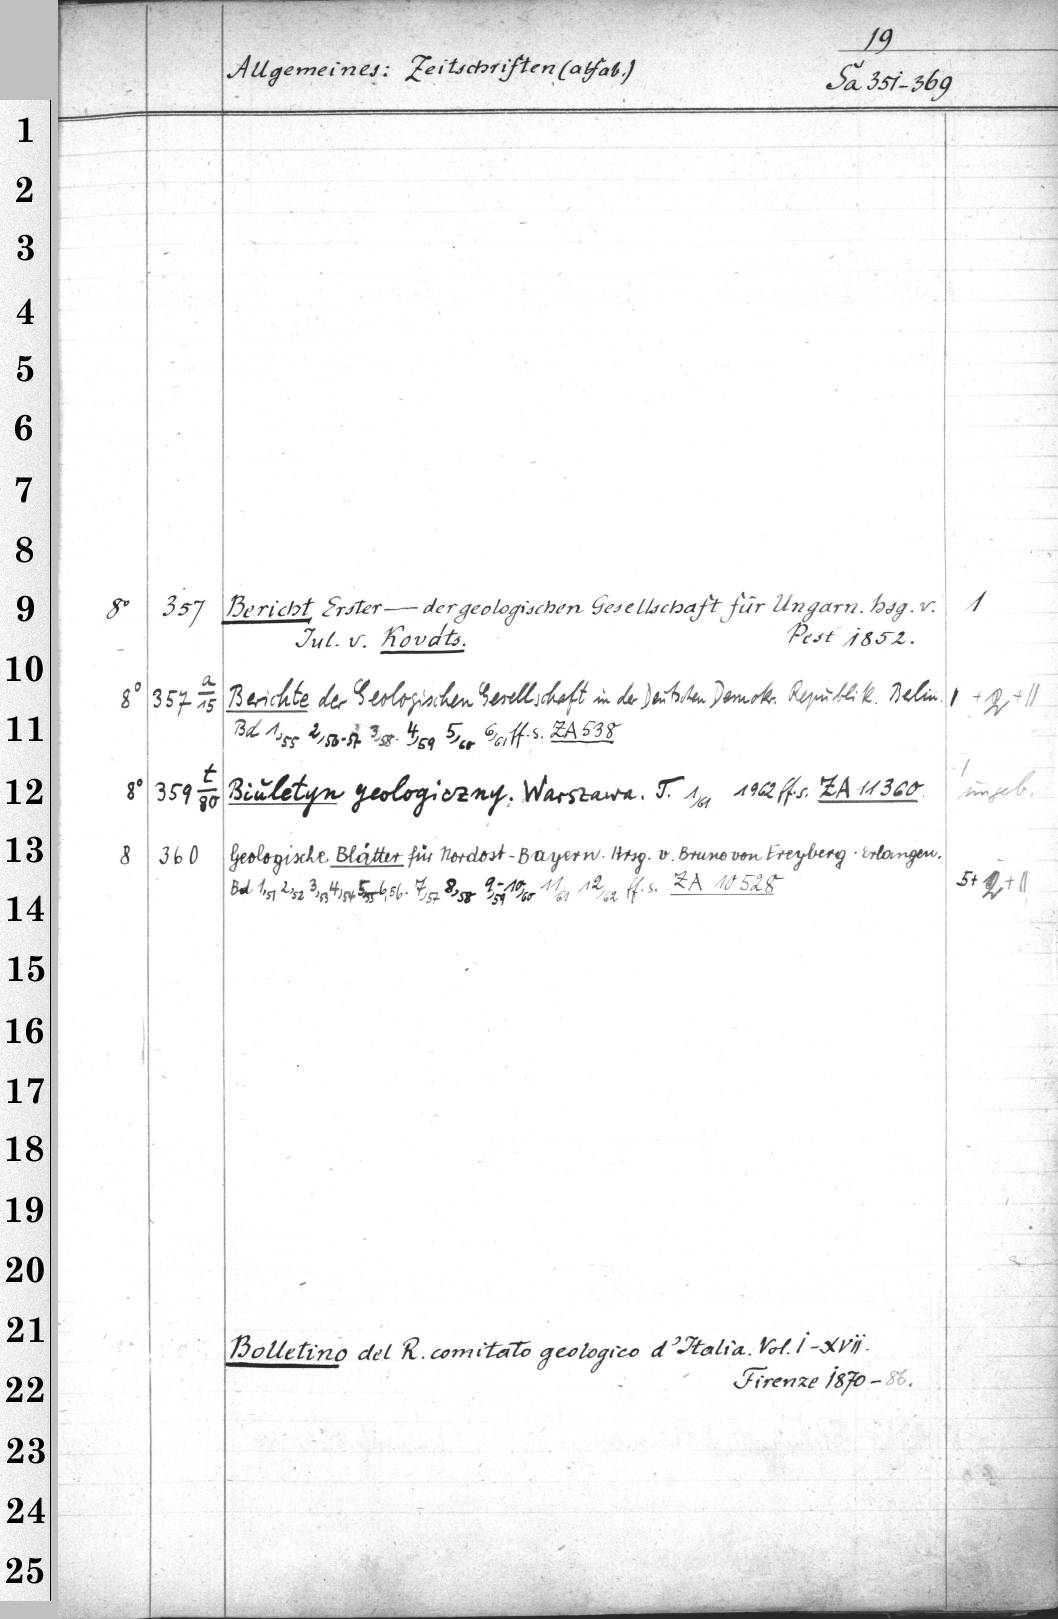 19
Allgemeines: Zeitschriften (alfab.)
Sa 351-369
1
2
3
4
5
6
7
8
9
8° 357 Bericht, Erster — der geologischen Gesellschaft für Ungarn. hsg. v. 1
Jul. v. Kováts. Pest 1852.
10
8° 357 a/15 Berichte der Geologischen Gesellschaft in der Deutschen Demokr. Republik. Berlin. 1 + 2 + 11
11
Bd 1,55 2,56-57 3,58. 4,59 5,60 6,61 ff. s. ZA 538
12
8° 359 t/80 Biuletyn geologiczny. Warszawa. T. 1/61 1962 ff. s. ZA 11360. 1
ungeb.
13
8 360 Geologische Blätter für Nordost-Bayern. Hrsg. v. Bruno von Freyberg. Erlangen.
14
Bd 1,51 2,52 3,53 4,54 5,55 6,56. 7,57 8,58 9,59-10,60 11,61 12,62 ff. s. ZA 10528 5 + 2 + 11
15
16
17
18
19
20
21
Bolletino del R. comitato geologico d'Italia. Vol. I-XVII.
22
Firenze 1870-86.
23
24
25